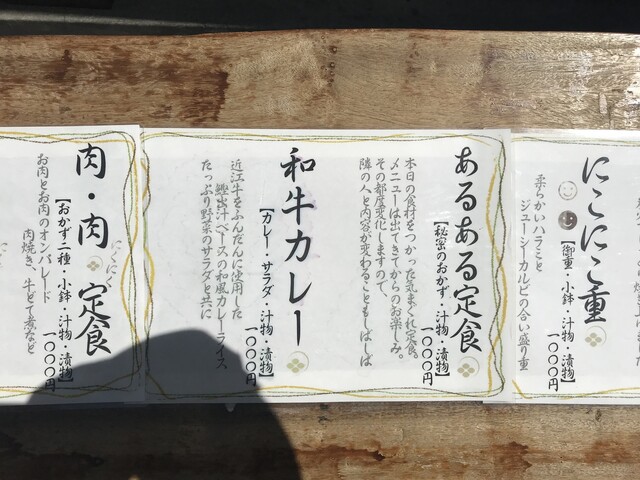 にこにこ重
【御重・小鉢・汁物・漬物】
一〇〇〇円
柔らかいハラミと
ジューシーカルビの合い盛り重
あるある定食
【秘密のおかず・汁物・漬物】
一〇〇〇円
本日の食材をつかった気まぐれ定食。
メニューは出てきてからのお楽しみ。
その都度変化しますので、
隣の人と内容が変わることもしばしば
和牛カレー
【カレー・サラダ・汁物・漬物】
一〇〇〇円
近江牛をふんだんに使用した
鰹出汁ベースの和風カレーライス
たっぷり野菜のサラダと共に
肉・肉定食
にくにく
【おかず二種・小鉢・汁物・漬物】
一〇〇〇円
お肉とお肉のオンパレード
肉焼き、牛すじ煮など